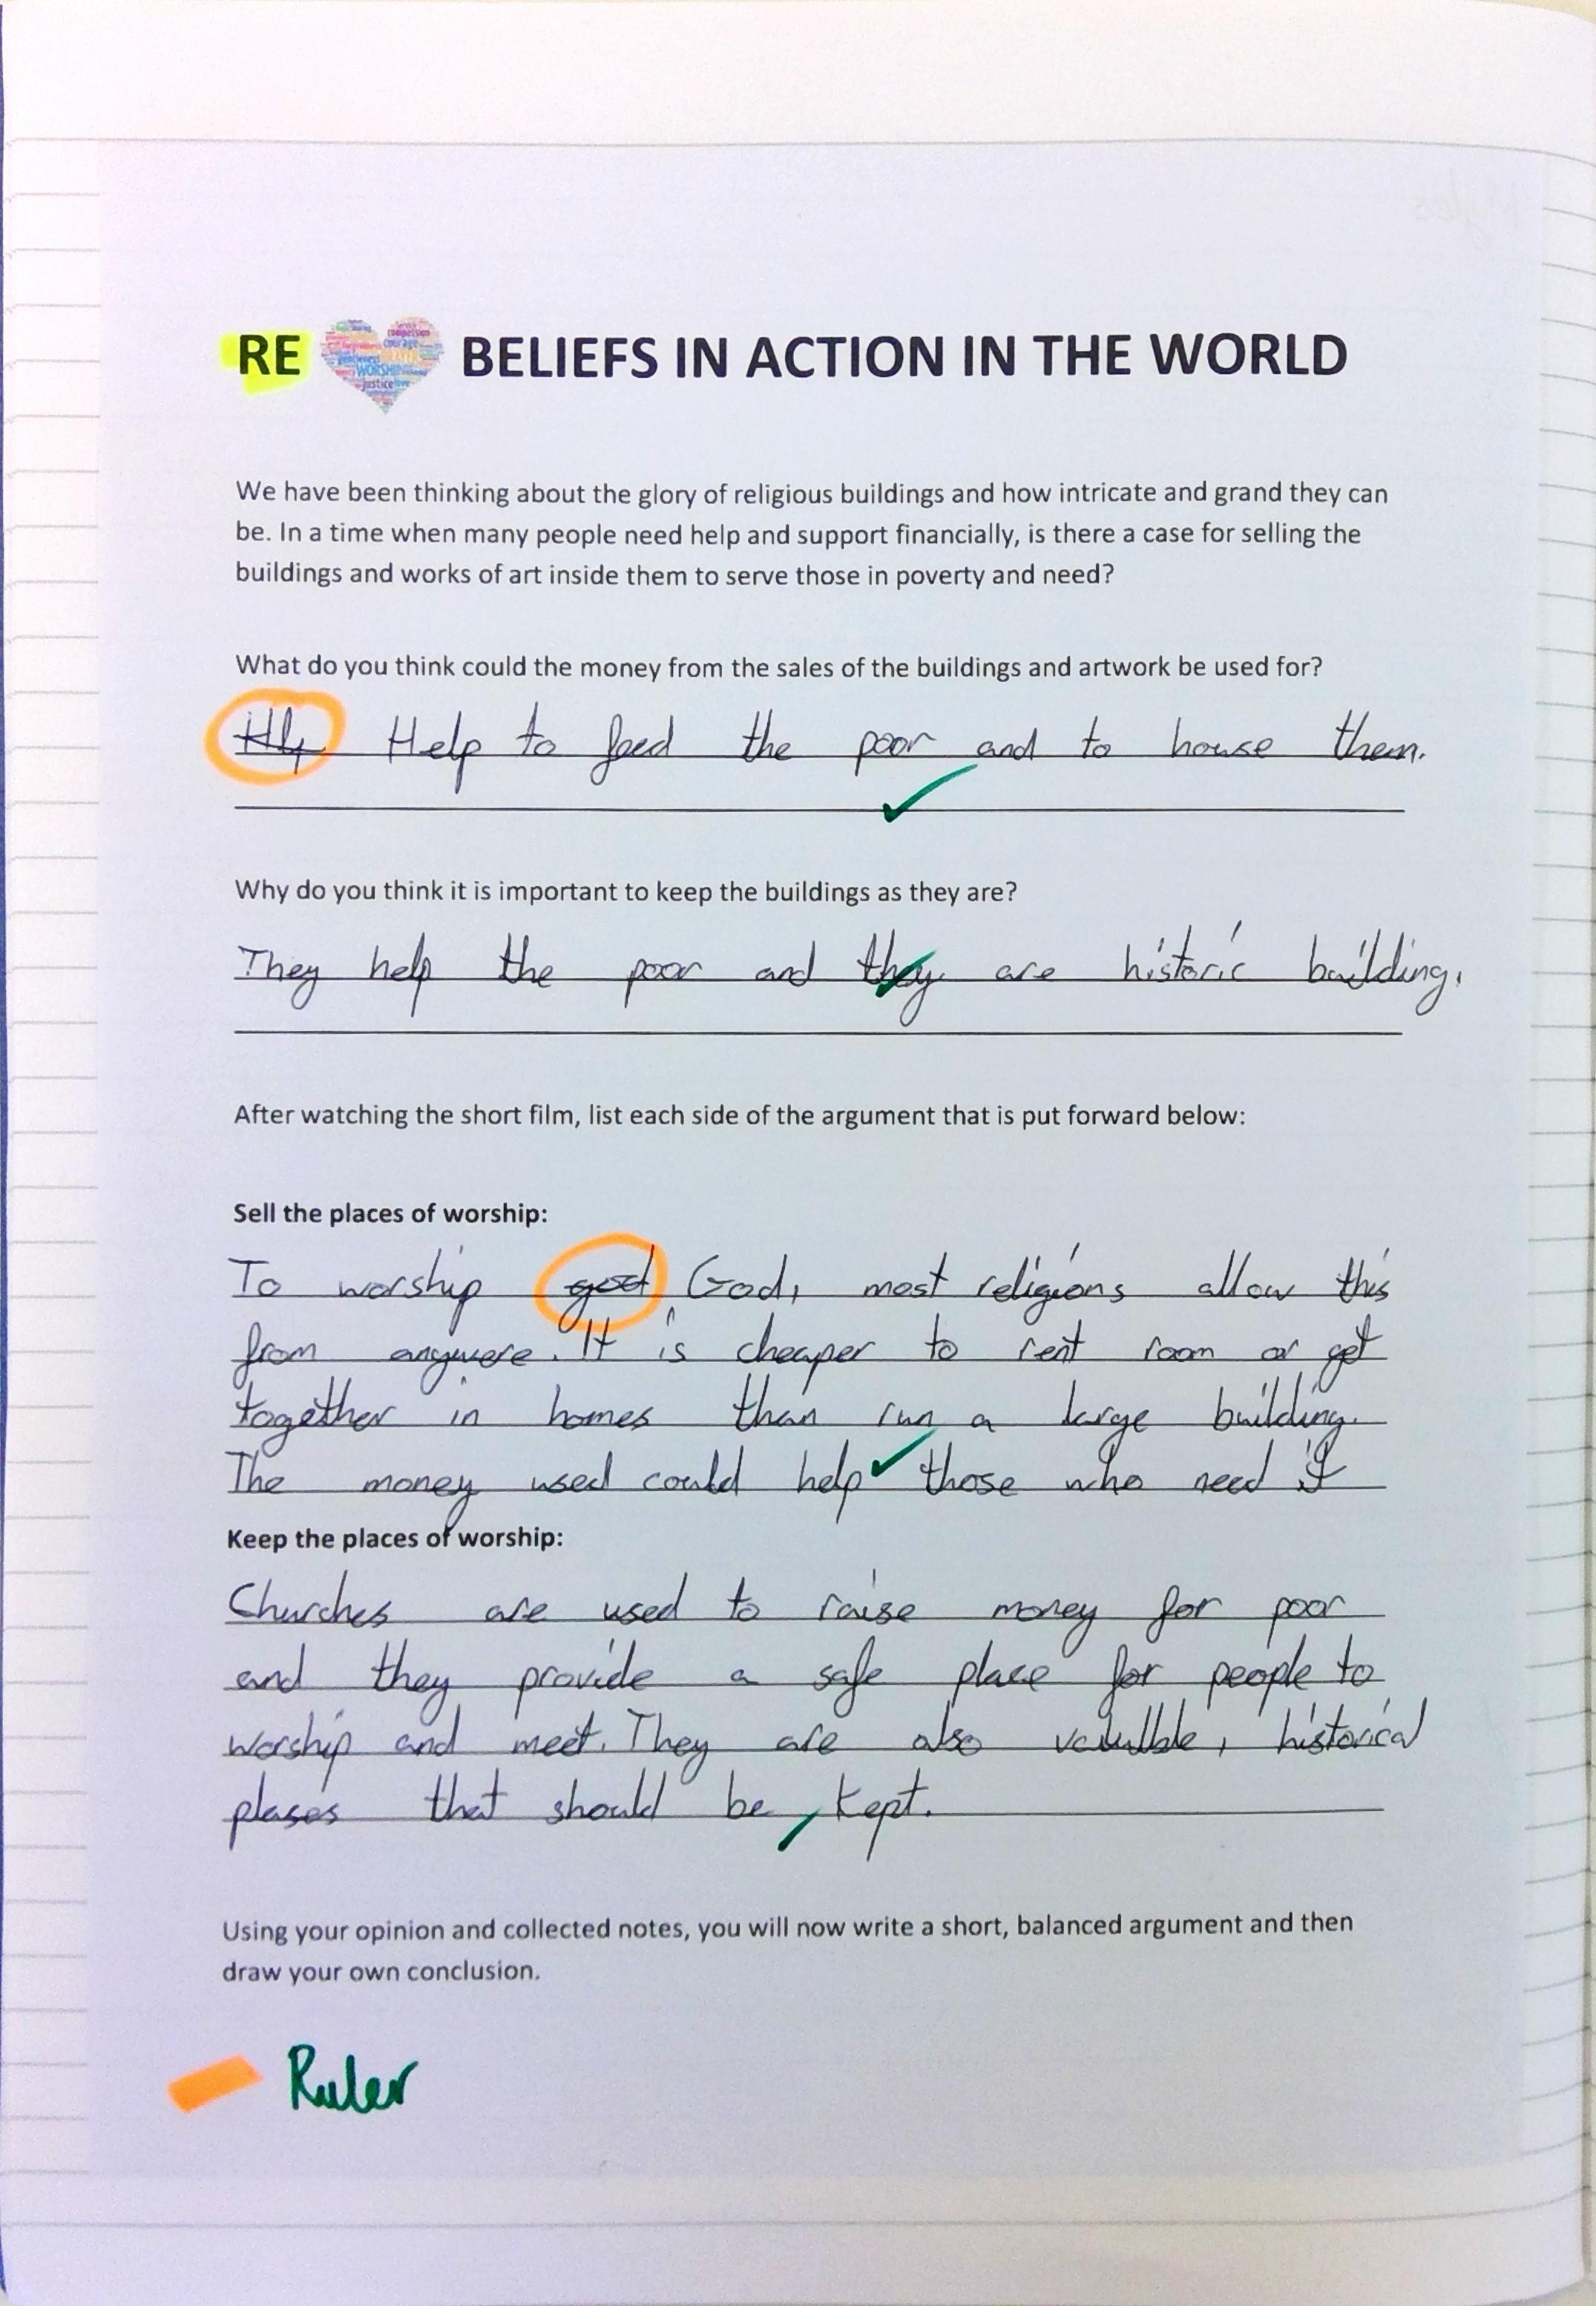 RE BELIEFS IN ACTION IN THE WORLD
We have been thinking about the glory of religious buildings and how intricate and grand they can
be. In a time when many people need help and support financially, is there a case for selling the
buildings and works of art inside them to serve those in poverty and need?
What do you think could the money from the sales of the buildings and artwork be used for?
Help to feed the poor and to house them.
Why do you think it is important to keep the buildings as they are?
They help the poor and they are historic building.
After watching the short film, list each side of the argument that is put forward below:
Sell the places of worship:
To worship god God, most religions allow this
from anywere. It is cheaper to rent room or get
together in homes than run a large building.
The money used could help those who need it
Keep the places of worship:
Churches are used to raise money for poor
and they provide a safe place for people to
worship and meet. They are also , historical
plases that should be kept.
Using your opinion and collected notes, you will now write a short, balanced argument and then
draw your own conclusion.
Ruler